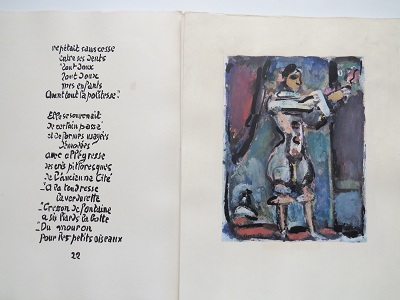 repétait sans cesse
entre ses dents
"Tout doux
Tout doux
mes enfants
Avant tout la politesse".
Elle se souvenait
de certain passé
et de formes usagées
Démodées
avec allégresse
des cris pittoresques
de l'ancienne Cité
_"A la tendresse
la verduresse
_"Cresson de fontaine
a six liards la botte
_"Du mouron
pour les petits oiseaux
22